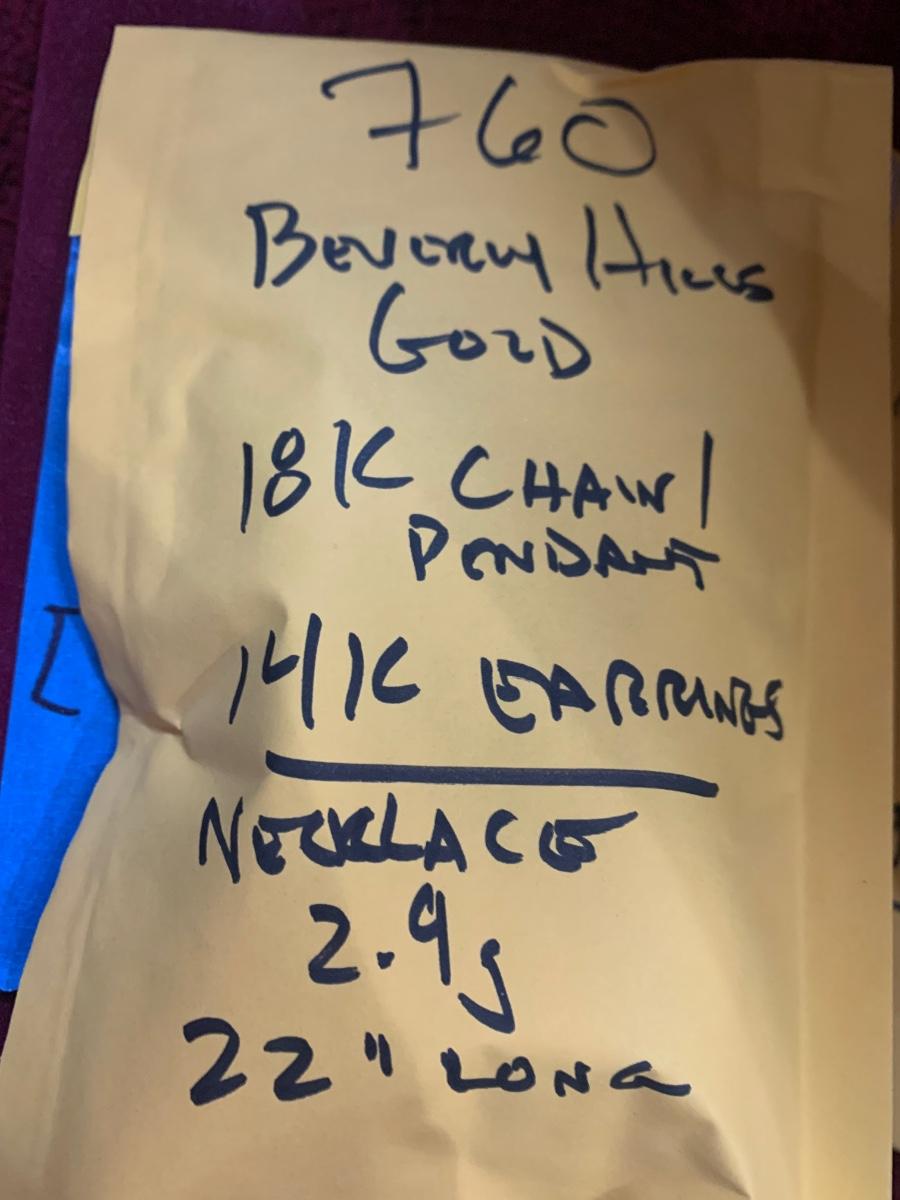 760
BEVERLY HILLS
GOLD
18K CHAIN/
PENDANT
14K EARRINGS
NECKLACE
2.9g
22" LONG